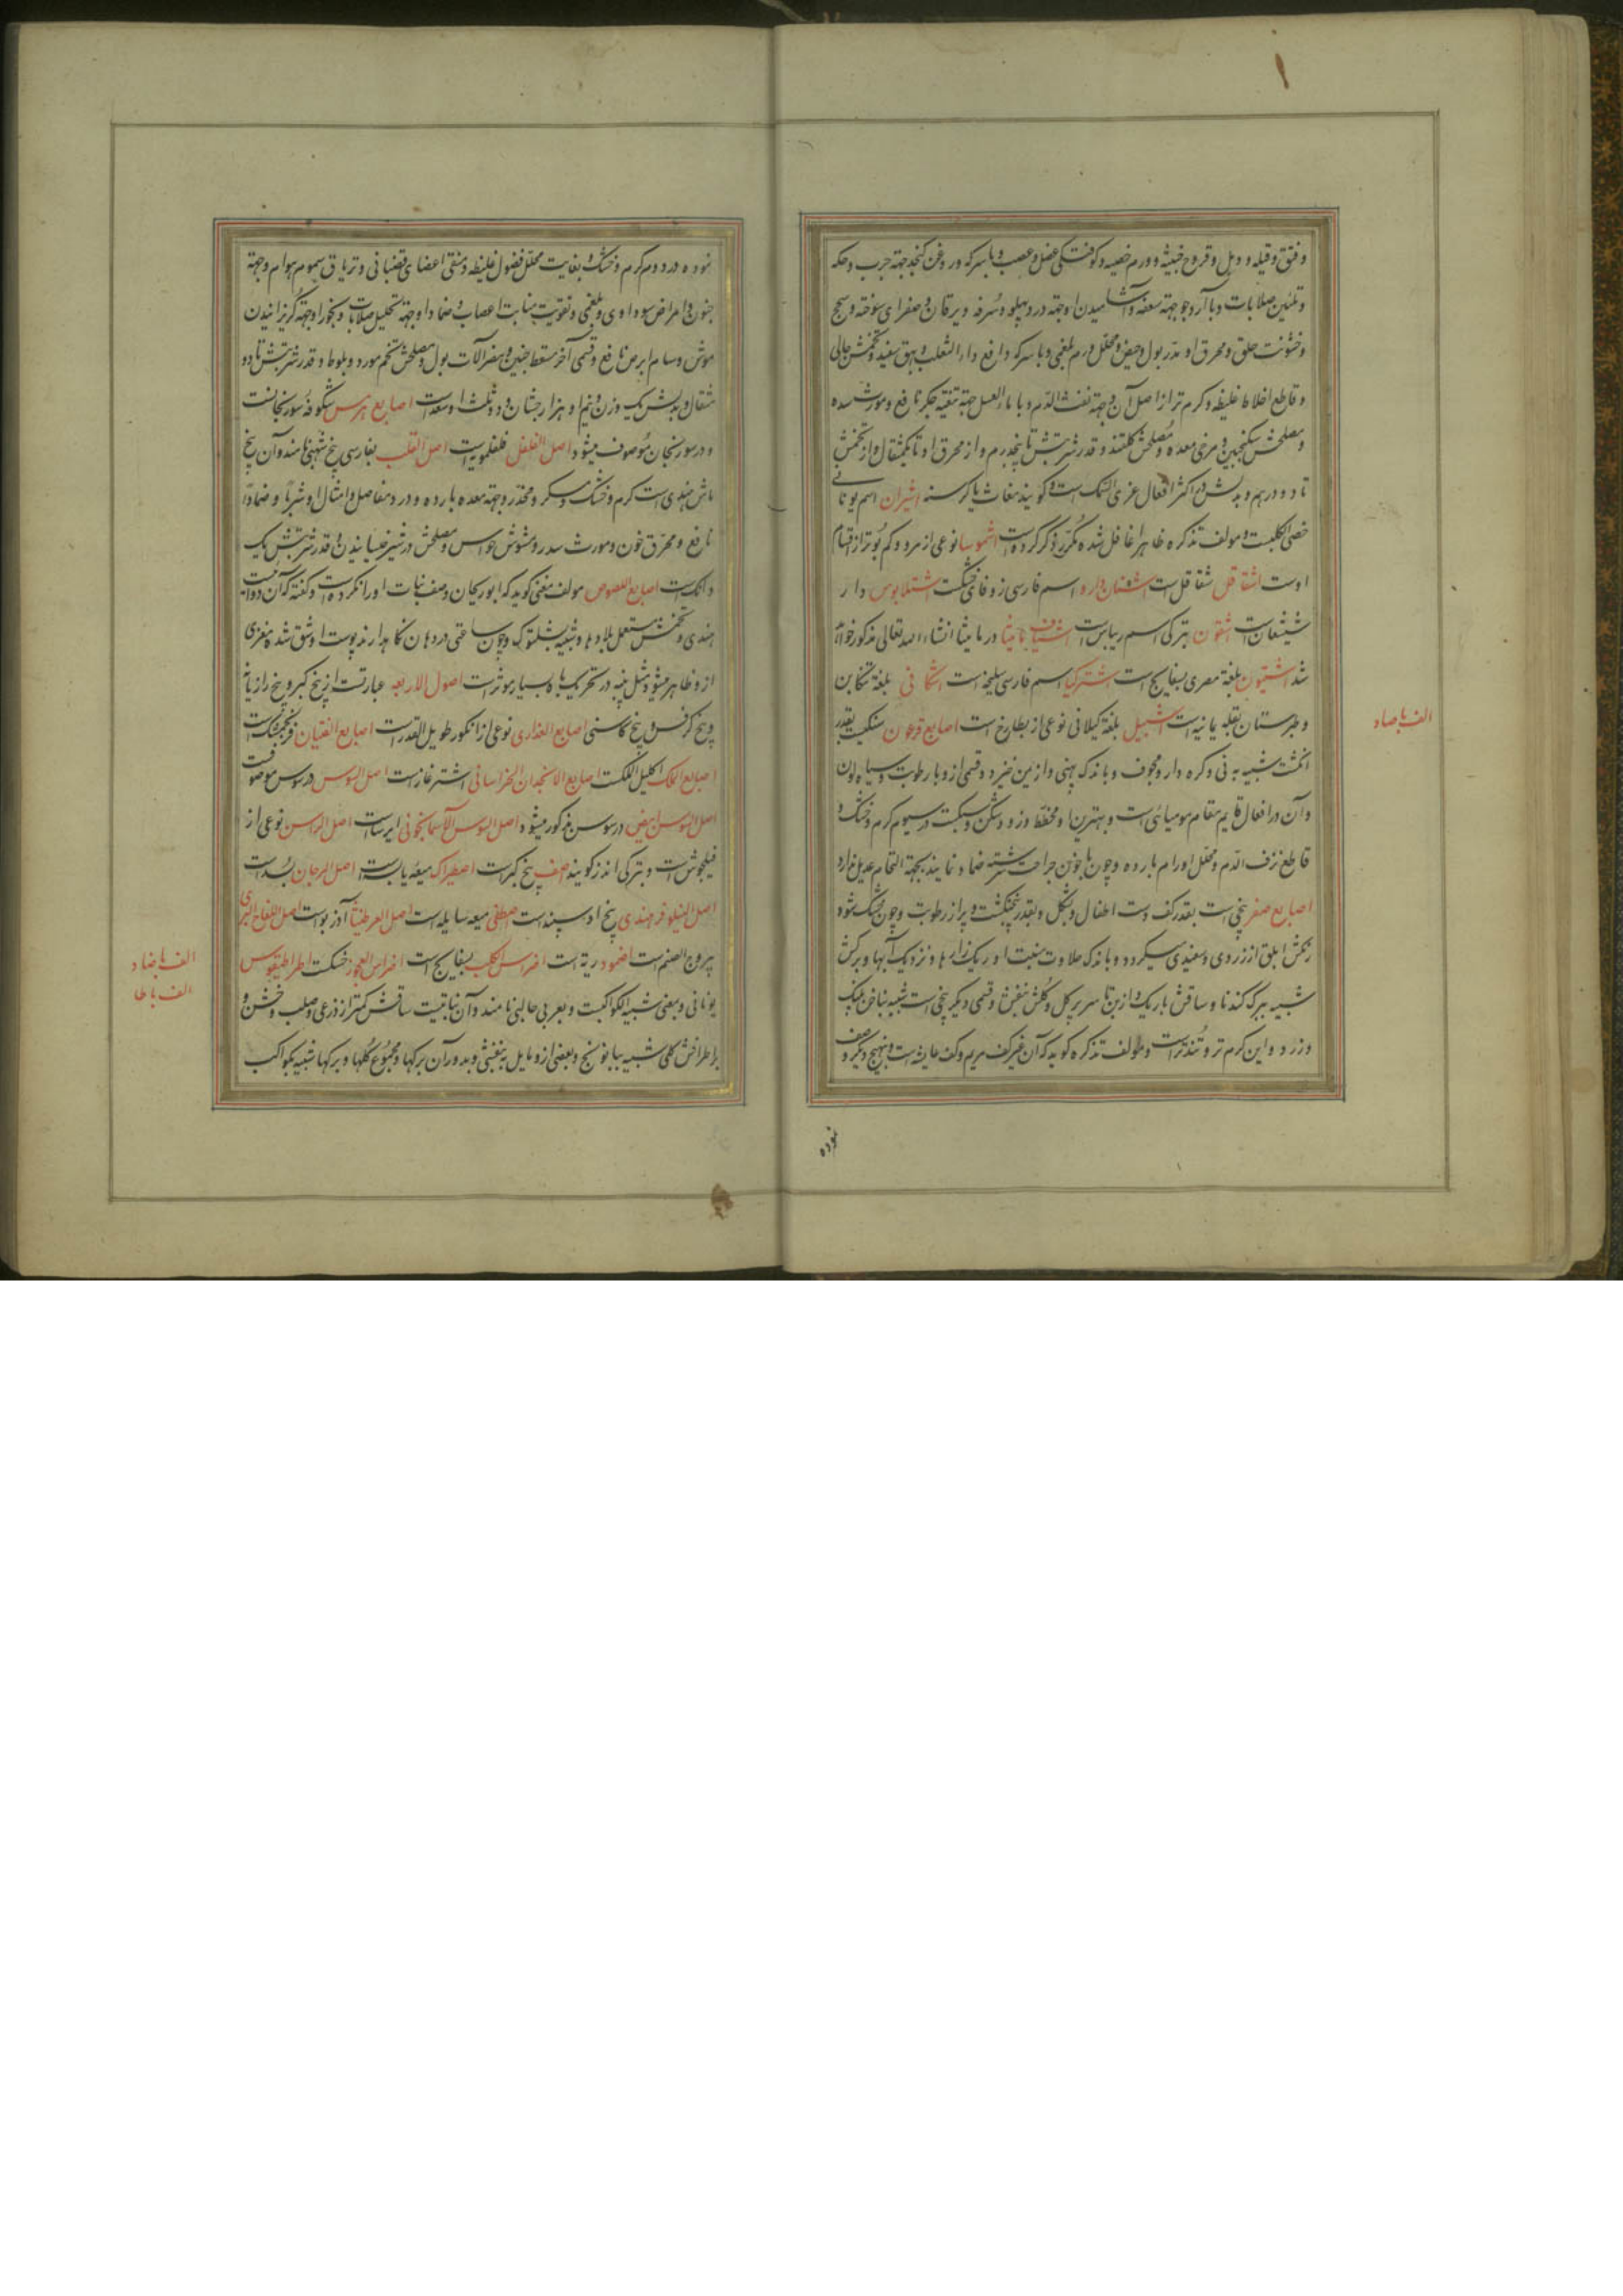 و فتق و قیله و دبل و قروح خبیثه و ورم خصیه و کوفتگی عضل و عصب و با سرکه و روغن کنجد جهة جرب و حکه
و تلیین صلابات و با آرد جو جهة سعفه و آشامیدن او جهة درد پهلو و سرفه و یرقان و صفرای سوخته و سحج
و خشونت حلق و محرق او مدر بول و حیض و محلل ورم بلغمی و با سرکه دافع داء الثعلب و بهق سفید و تخمش جالی
و قاطع اخلاط غلیظه و کرم تر از اصل آن و جهة نفث الدم و با ماء العسل جهة تنقیه جکر نافع و مورث سده
و مصلحش سکنجبین و مرخی معده و مصلحش کلقند و قدر شربتش تا پنجدرم و از محرق او تا یکمثقال و از تخمش
تا دو درهم و بدلش در اکثر افعال غری السمک است و کویند مغاث یا کرسنه اشیران اسم یونانی
خصی الکلب است و مولف تذکره ظاهرا غافل شده مکرر ذکر کرده است اشموسا نوعی از مرو و کم بوتر از اقسام
اوست اشقاقل شقاقل است اشنان دارو اسم فارسی زوفای خشکست اشتلابوس دار
شیشعان است اشقون بترکی اسم ریباس است اشیاف مامیثا در مامیثا انشاء الله تعالی مذکور خواهد
شد اشتیون بلغة مصری بسفایج است اشترکیا اسم فارسی سلیخه است اشکافی بلغة تنکابن
و طبرستان بقله یمانیه است اشبیل بلغة کیلانی نوعی از بطارخ است اصابع فرعون سنکیست بقدر
انکشت شبیه به نی و کره دار و مجوف و باندک پهنی و از یمن خیزد و قسمی از و با رطوبت و سیاه لون
و آن در افعال قایم مقام مومیائی است و بهترین او مخطط و زود شکن و سبکست در سیوم کرم و خشک و
قاطع نزف الدم و محلل اورام بارده و چون با خون جراحت سرشته ضماد نمایند بجهة التحام عدیل ندارد
اصابع صفر بیخی است بقدر کف دست اطفال و بشکل و بقدر پنجانکشت و پر از رطوبت و چون خشک شود
رنکش ابلق از زردی و سفیدی میکردد و باندک حلاوت منبت او ریک زارها و نزدیک آبها و برکش
شبیه ببرک کندنا و ساقش باریک و از بن تا سر پر کل و کلش بنفش و قسمی دیکر بیخی است شبیه بناخن پلنک
و زرد و این کرم تر و تندتر است و مولف تذکره کوید که آن غیر کف مریم و کف عایشه است و بهیچ دیکر وصف
نموده
الف با صاد
نموده در دوم کرم و خشک و بغایت محلل فضول غلیظه و منقی اعضای قصبانی و تریاق سموم هوام و جهة
جنون و امراض سوداوی و بلغمی و تقویت اعصاب و ضماد او جهة تحلیل صلابات و بخور او جهة کریزانیدن
موش و سام ابرص نافع و قسمی آخر مسقط جنین و مضر آلات بول و مصلحش تخم مورد و بلوط و قدر شربتش تا دو
مثقال و بدلش یک وزن و نیم او هزارجشان و دو ثلث او سعد است اصابع هرمس شکوفه سورنجانست
و در سورنجان موصوف میشود اصل الفلفل فلفلمویه است اصل القلب بفارسی بیخ شهبی نامند و آن بیخ
ماش هندی است کرم و خشک و مسکر و مخدر و جهة معده بارده و درد مفاصل و امثال او شربا و ضمادا
نافع و محرق خون و مورث سدر و مشوش حواس و مصلحش در شیر خیسانیدن و قدر شربتش یک
دانک است اصابع اللصوص مولف مغنی کوید که ابوریحان وصف نبات او را نکرده است و کفته که آن دوائیست
هندی و تخمش مستعمل بلادها و شبیه بشلتوک و چون ساعتی در دهان نکاهدارند پوست او شق شده مغزی
از و ظاهر میشود مثل پنبه در تحریک باه بسیار موثر است اصول الاربعه عبارتست از بیخ کبر و بیخ رازیانه
و بیخ کرفس و بیخ کاسنی اصابع العذاری نوعی از انکور طویل القدر است اصابع الفتیان فرنجمشک است
اصابع الملک اکلیل الملکست اصابع الانجدان الخراسانی اشترغاز است اصل السوس در سوس موصوفست
اصل السوسن ابیض در سوسن مذکور میشود اصل السوسن الآسمانجونی ایرسا است اصل الراسن نوعی از
فیلجوش است و بترکی اندز کویند اصف بیخ کبر است اصطیراک میعه یابسه است اصل المرجان بسد است
اصل النیلوفر هندی بیخ او سپند است اصطفی میعه سایله است اصل العرطنیثا آذربو است اصل اللفاح البری
یبروح الصنم است اضمود ریة است اضراس الکلب بسفایج است اضراس العجوز خسکست اطراطیقوس
یونانی و بمعنی شبیه الکواکبست و بعربی حالبی نامند و آن نباتیست ساقش کمتر از ذرعی و صلب و خشن و
بر اطرافش کلی شبیه ببابونج و بعضی از و مایل به بنفشی و بدور آن برکها و مجموع کلها و برکها شبیه بکواکب
الف با ضاد
الف با طا